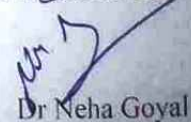 Dr Neha Goyal